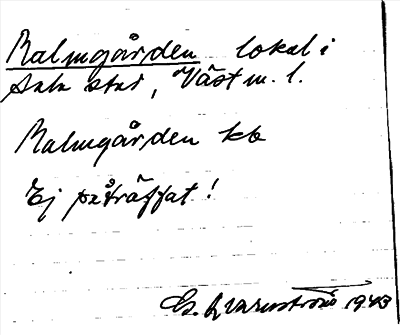 Malmgården lokal i
Sala stad, Västm. l.
Malmgården kb
Ej påträffat!
G. 1943